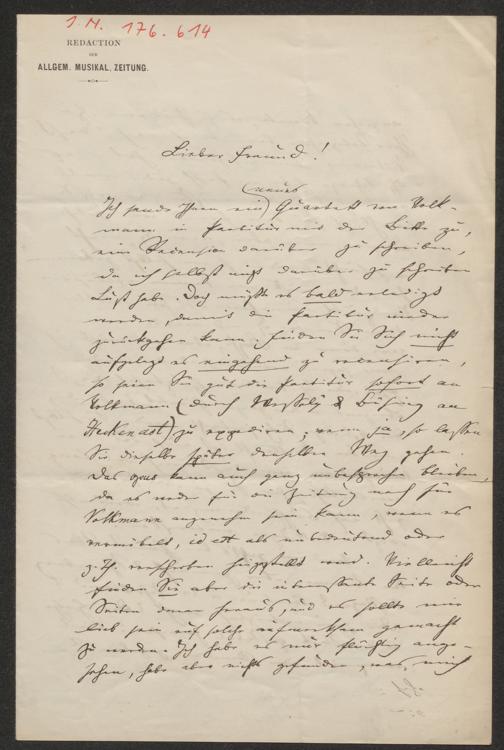 I. N. 176.614
REDACTION
DER
ALLGEM. MUSIKAL. ZEITUNG.
Lieber Freund!
(neues
Ich sende Ihnen ein) Quartett von Volk-
mann in Partitur mit der Bitte zu,
eine Recension darüber zu schreiben,
da ich selbst nicht darüber zu schreiben
Lust habe. Doch müßte es bald erledigt
werden, damit die Partitur wieder
zurückgehen kann. Finden Sie Sich nicht
aufgelegt es eingehend zu recensiren,
so seien Sie gut die Partitur sofort an
Volkmann (durch Wessely & Büsing an
Heckenast) zu expediren; wenn ja, so lassen
Sie dieselbe später denselben Weg gehen.
Das opus kann auch ganz unbesprochen bleiben,
da es weder für die Zeitung noch für
Volkmann angenehm sein kann, wenn es
vermöbelt, id est als unbedeutend oder
z. Th. verschroben hingestellt wird. Vielleicht
finden Sie aber die interessante Seite oder
Seiten daran heraus, und es sollte mir
lieb sein auf solche aufmerksam gemacht
zu werden. Ich habe es nur flüchtig ange-
sehen, habe aber nichts gefunden, was mich